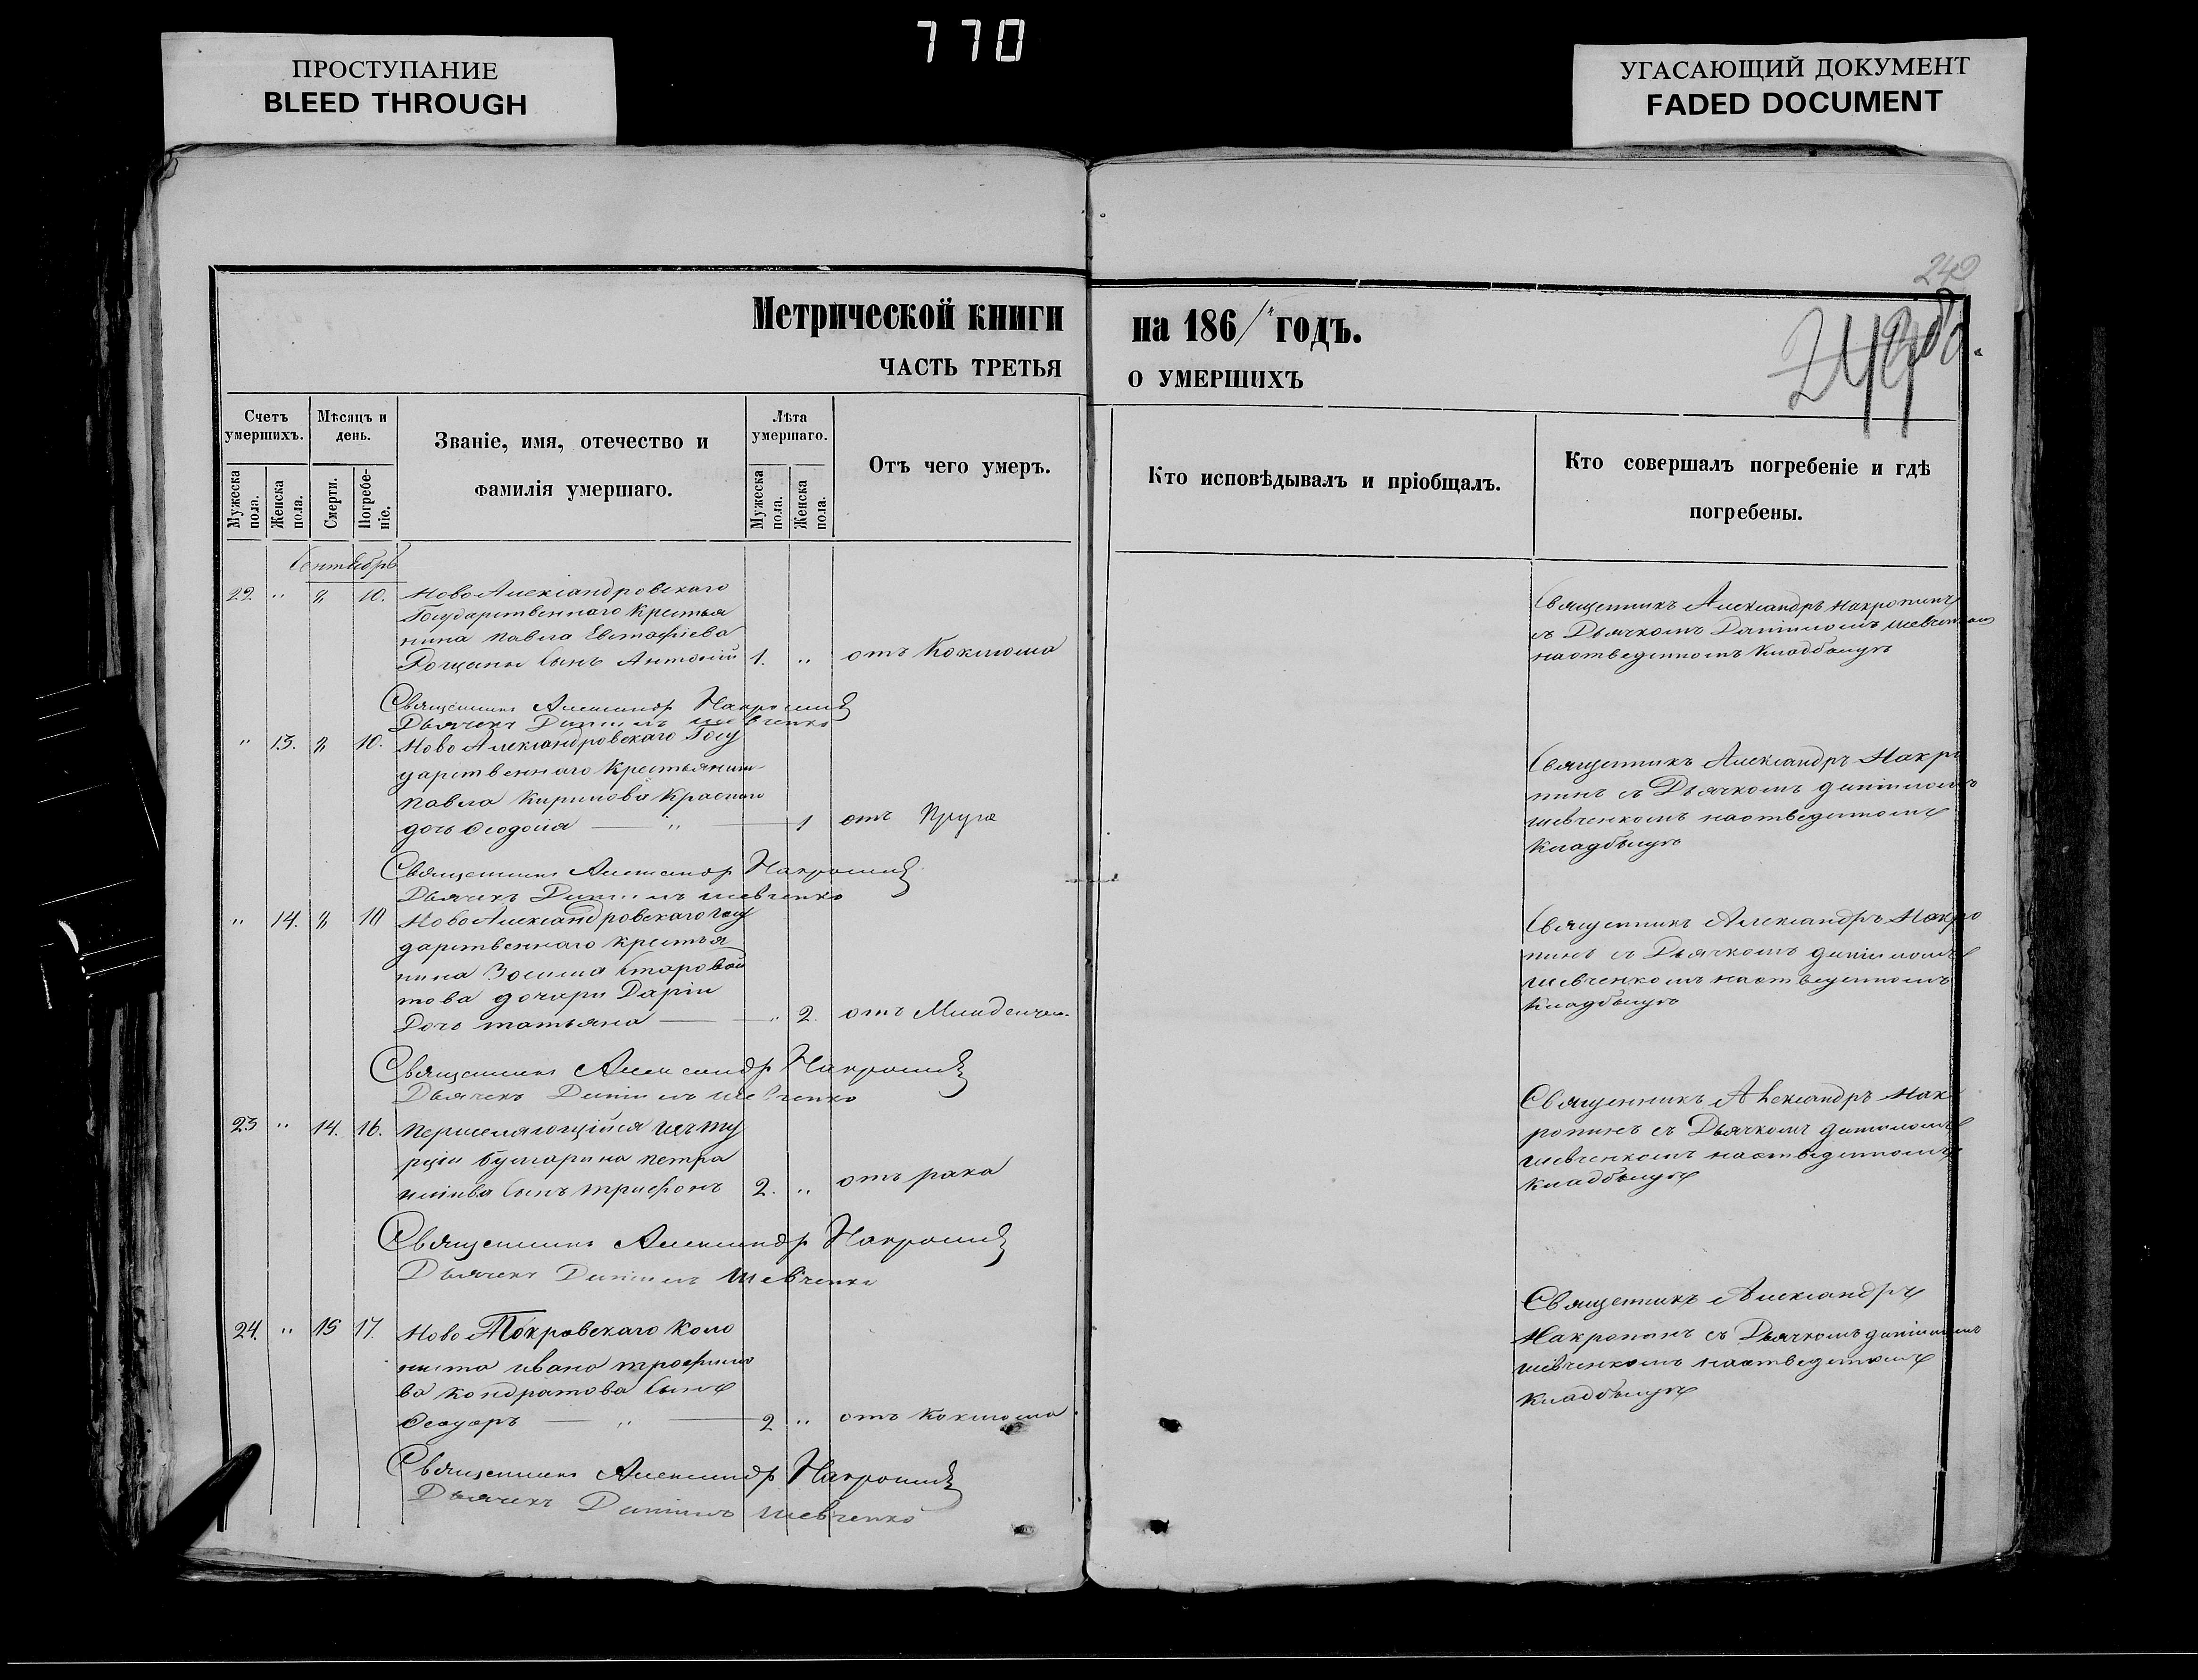 770
ПРОСТУПАНИЕ
BLEED THROUGH
УГАСАЮЩИЙ ДОКУМЕНТ
FADED DOCUMENT
249
Метрической книги
на 1861 годъ.
ЧАСТЬ ТРЕТЬЯ
О УМЕРШИХЪ
Счетъ умершихъ.
Мѣсяцъ и день.
Званіе, имя, отечество и
фамилія умершаго.
Лѣта умершаго.
Отъ чего умеръ.
Кто исповѣдывалъ и пріобщалъ.
Кто совершалъ погребеніе и гдѣ
погребены.
Мужеска пола.
Женска пола.
Смерти.
Погребе-
ніе.
Мужеска пола.
Женска пола.
Сентябрь
22 " 8 10. Ново Александровскаго
Государственнаго Крестья
нина Павла Евстафіева
сынъ Антоній 1. " отъ Коклюша
Священникъ Александръ
съ Дьячкомъ Даніиломъ Шевченком
наотведенномъ Кладбищѣ
Священникъ Александр
Дьячекъ Даниилъ Шевченко
" 13. 8 10. Ново Александровскаго Госу
дарственнаго Крестьянина
Павла Кирилова
дочь Феодосія — " — 1 отъ
Священникъ Александръ
съ Дьячкомъ даніиломъ
шевченкомъ наотведенномъ
Кладбищѣ
Священникъ Александр
Дьячекъ Даниилъ шевченко
" 14. 8 10 Ново Александровскаго Госу
дарственнаго Крестья
нина Зосима Старовой
това дочери Даріи
Дочь татьяна — " 2. отъ
Священникъ Александръ
съ Дьячкомъ даніиломъ
шевченкомъ наотведенномъ
Кладбищѣ
Священникъ Александр
Дьячекъ Даниилъ Шевченко
23 " 14. 16. Переселяющійся изъ ту
рціи булгарина петра
сынъ трифонъ 2. " отъ рака
Священникъ Александръ
съ Дьячкомъ даніиломъ
шевченкомъ наотведенномъ
кладбищѣ
Священникъ Александр
Дьячекъ Даниилъ Шевченко
24. " 15 17. Ново Покровскаго Коло
ниста ивана трофимо
ва кондратова сынъ
Феодоръ — " — 2 " отъ Коклюша
Священникъ Александръ
съ Дьячкомъ даніиломъ
шевченкомъ наотведенномъ
кладбищѣ
Священникъ Александр
Дьячекъ Даниилъ шевченко